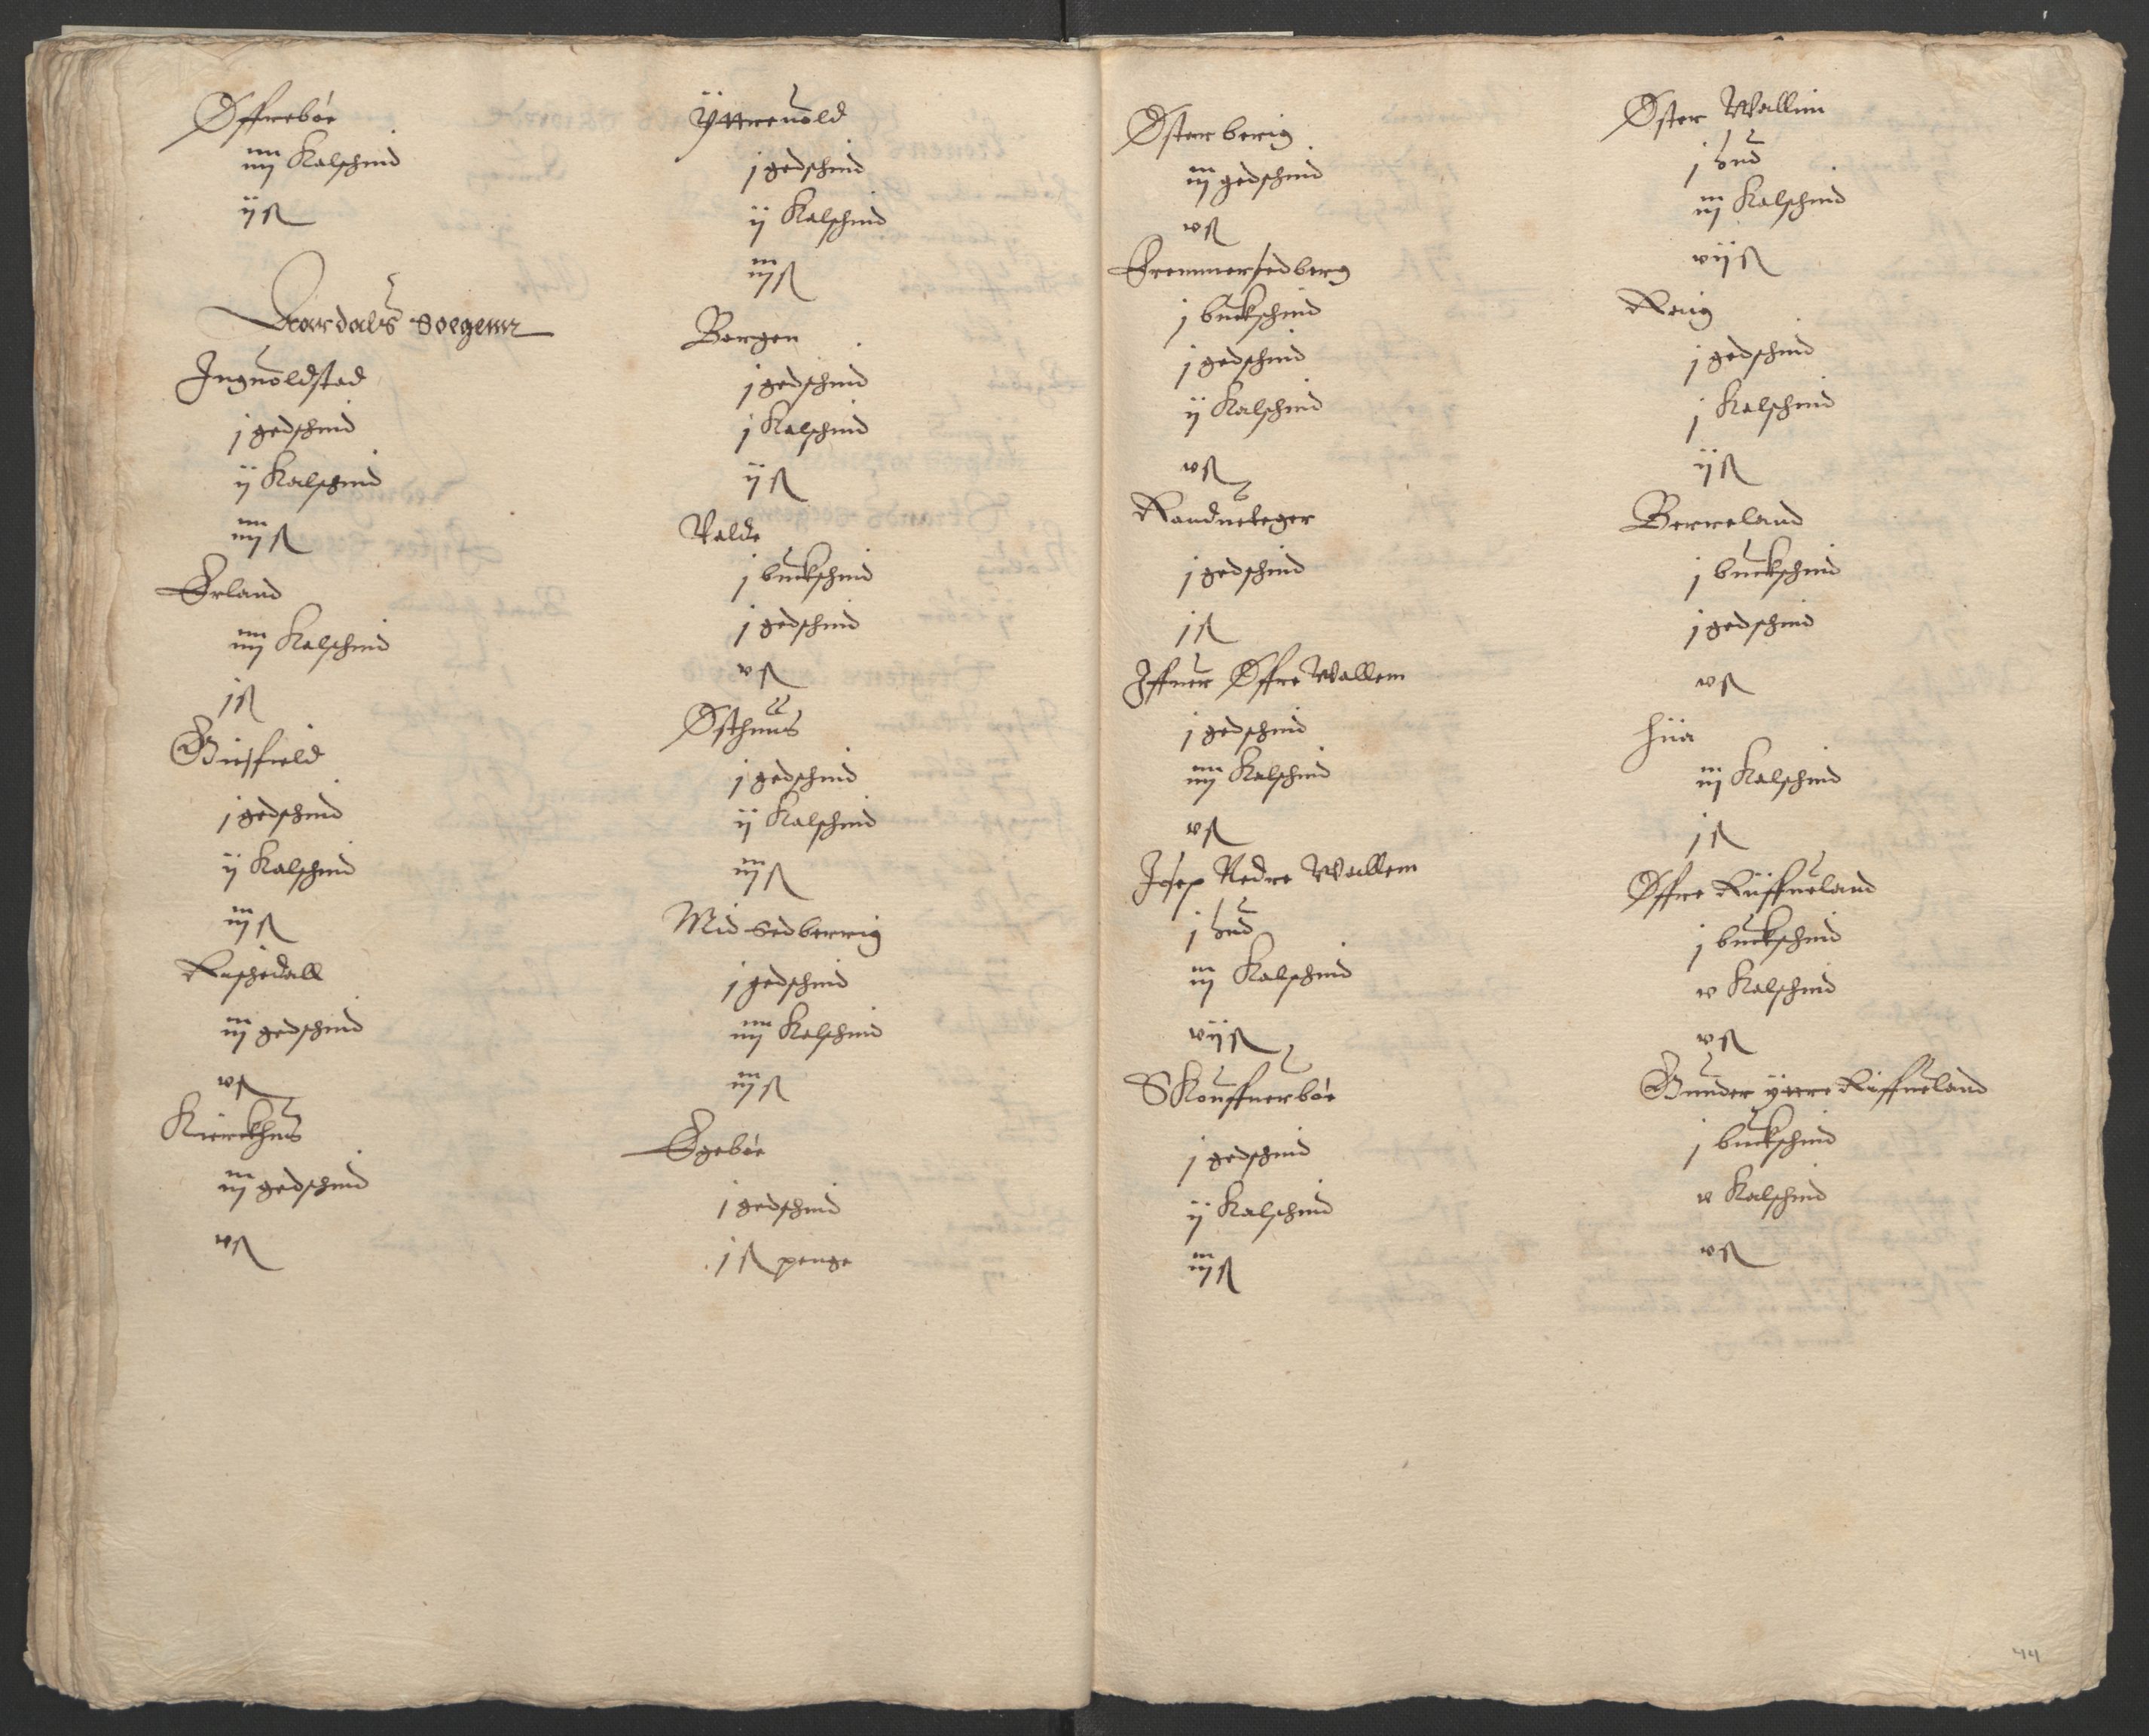 Øffrebøe
iiij Kalschind
ij ß
Aardals soegenn
Inguoldstad
j gedschind
ij Kalschind
iiij ß
Erland
iiij Kalschind
j ß
Giesfield
j gedschind
ij Kalschind
iij ß
Raschedall
iij gedschind
v ß
Kierckhus
iij gedschind
v ß
Yttreuold
j gedschind
ij Kalschind
iij ß
Bergen
j gedschind
j Kalschind
ij ß
Valde
j buckschind
j gedschind
v ß
Østhuus
j gedschind
ij Kalschind
iij ß
Mid Sedberrig
j gedschind
iiij Kalschind
iij ß
Egebøe
j gedschind
j ß penge
Østerberig
iij gedschind
v ß
Fremmersedberg
j buckschind
j gedschind
ij Kalschind
v ß
Randueleger
j gedschind
j ß
Iffuer Øffre Wallem
j gedschind
iiij Kalschind
v ß
Josep Nedre Wallem
j hud
iij Kalschind
vij ß
Skouffuerbøe
j gedschind
ij Kalschind
iij ß
Øster Wallim
j hud
iij Kalschind
vij ß
Reig
j gedschind
j Kalschind
ij ß
Berreland
j buckschind
j gedschind
v ß
Hiia
iij Kalschind
j ß
Øffre Riiffueland
j buckschind
v Kalschind
v ß
Gunder yttre Riffueland
j buckschind
v Kalschind
v ß
44